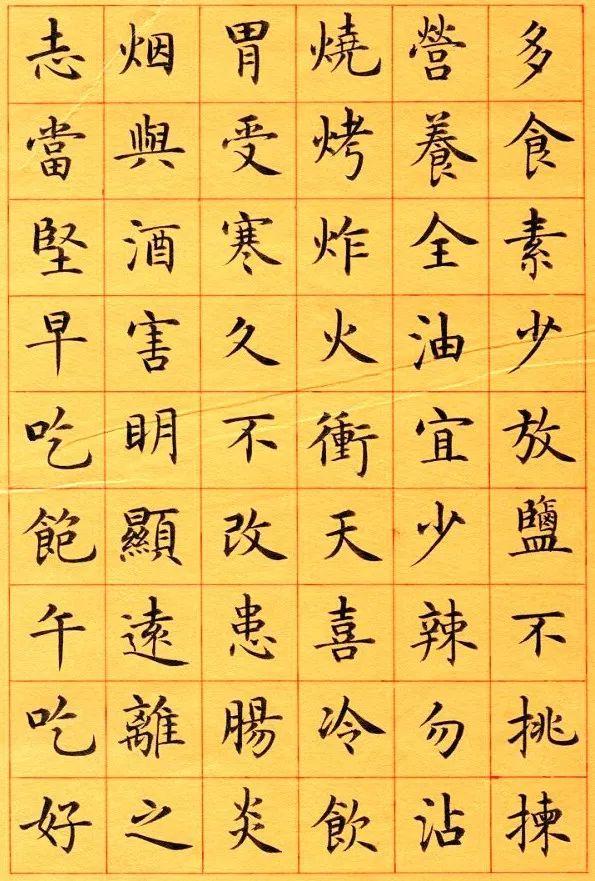 多食素少放鹽不挑揀
營養全油宜少辣勿沾
燒烤炸火衝天喜冷飲
胃受寒久不改患腸炎
烟與酒害明顯遠離之
志當堅早吃飽午吃好